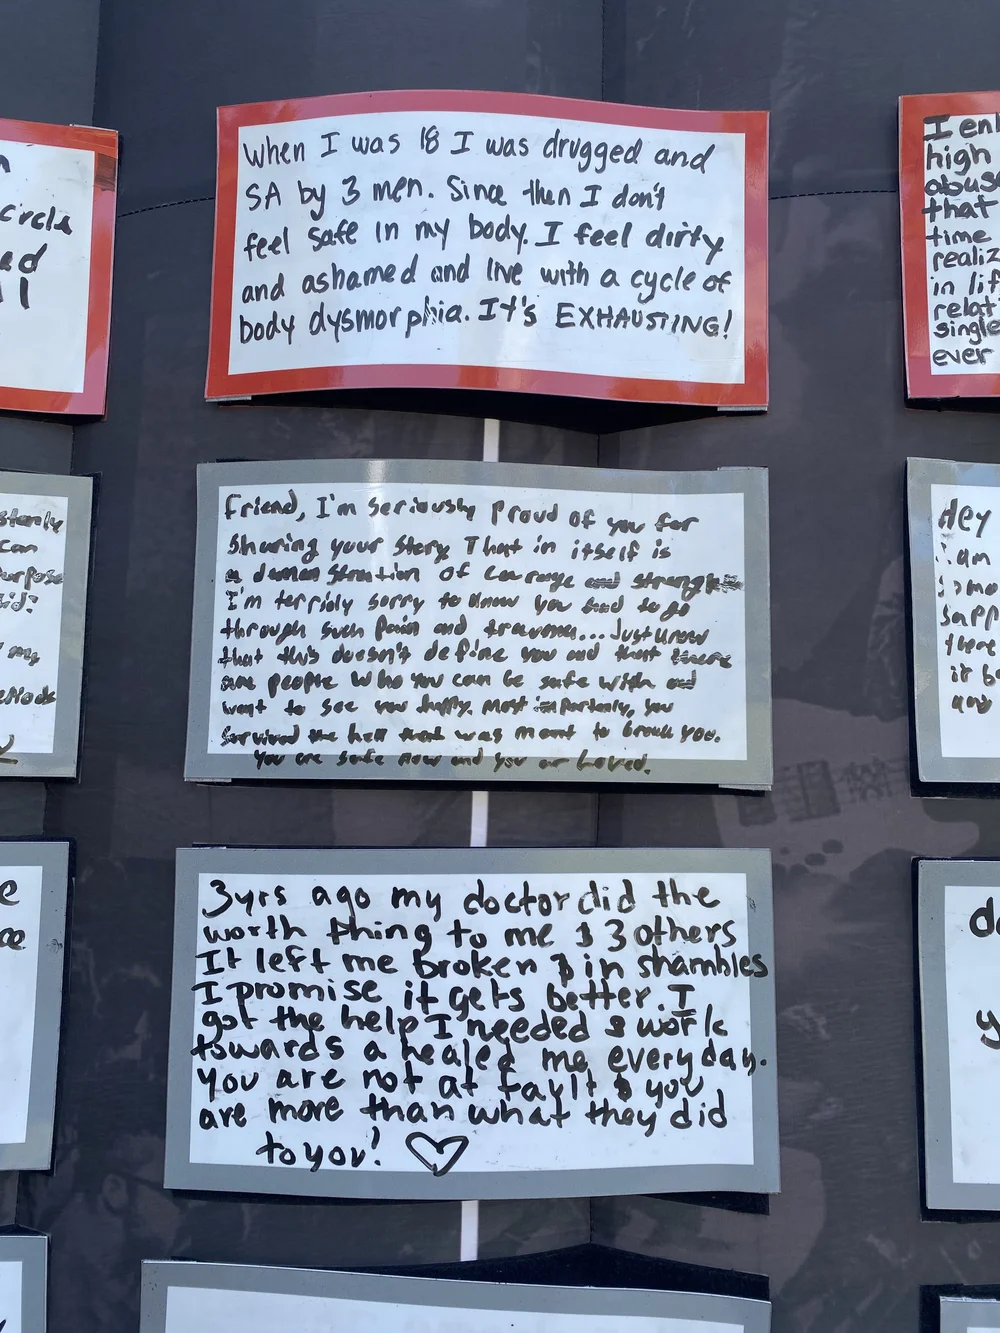 When I was 18 I was drugged and
SA by 3 men. Since then I don't
feel safe in my body. I feel dirty
and ashamed and live with a cycle of
body dysmorphia. It's EXHAUSTING!
Friend, I'm seriously proud of you for
sharing your story. That in itself is
a demonstration of courage and strength
I'm terribly sorry to know you had to go
through such pain and trauma... Just know
that this doesn't define you and that there
are people who you can be safe with and
want to see you happy. Most importantly, you
survived the hell that was meant to break you.
You are safe now and you are Loved.
3yrs ago my doctor did the
worth thing to me & 3 others
It left me broken & in shambles
I promise it gets better. I
got the help I needed & work
towards a healed me everyday.
You are not at fault & you
are more than what they did
to you! ♡
circle
I en
high
abuse
that
time
realiz
in lif
relat
single
ever
can
my
Hey
am
it b
d
y